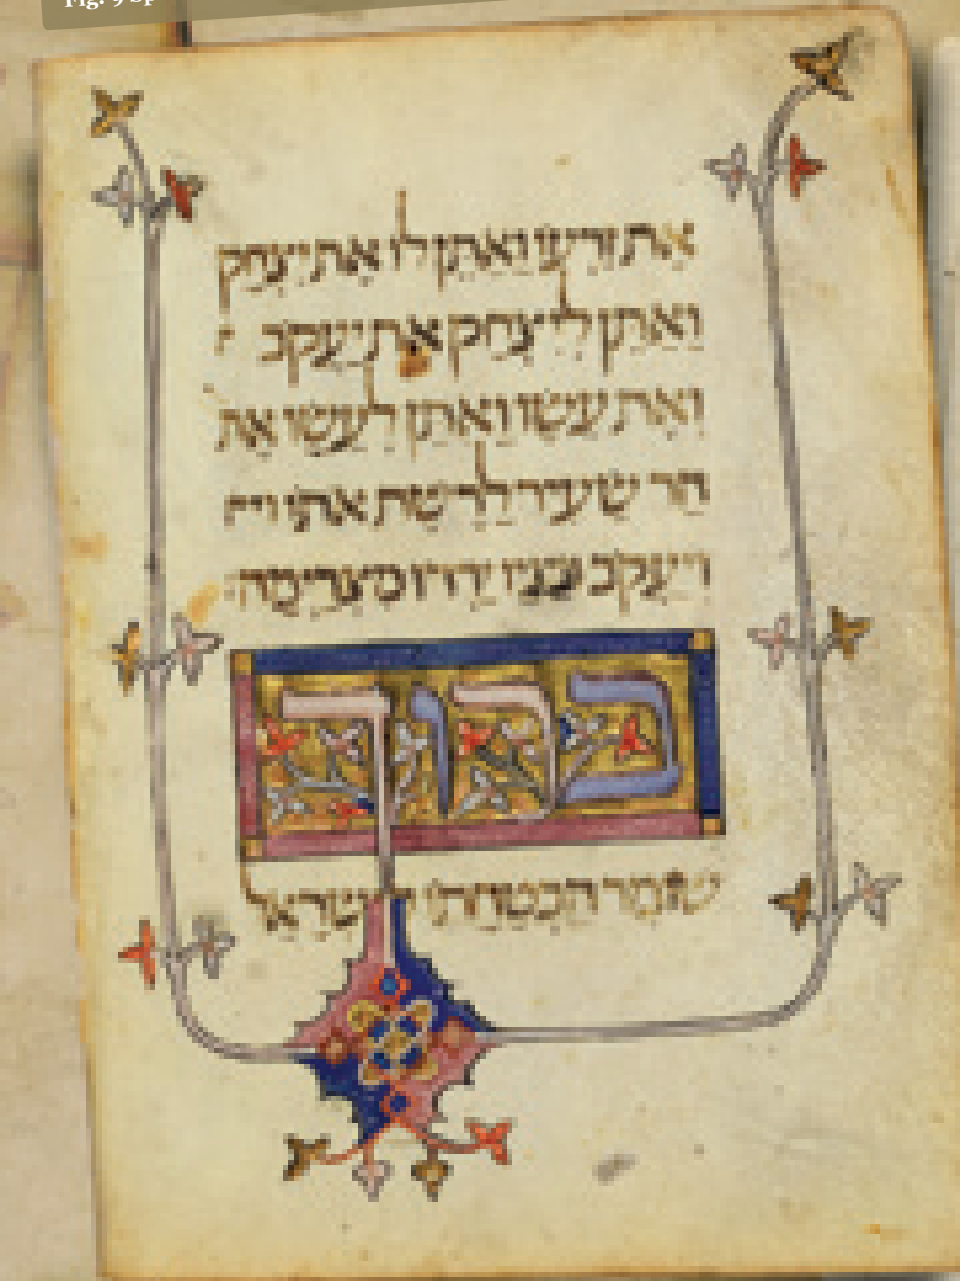 Fig. 9 Sp
את זרעו ואתן לו את יצחק
ואתן ליצחק את יעקב
ואת עשו ואתן לעשו את
הר שעיר לרשת אתו
ויעקב ובניו ירדו מצרימה:
ברוך
שומר הבטחתו לישראל